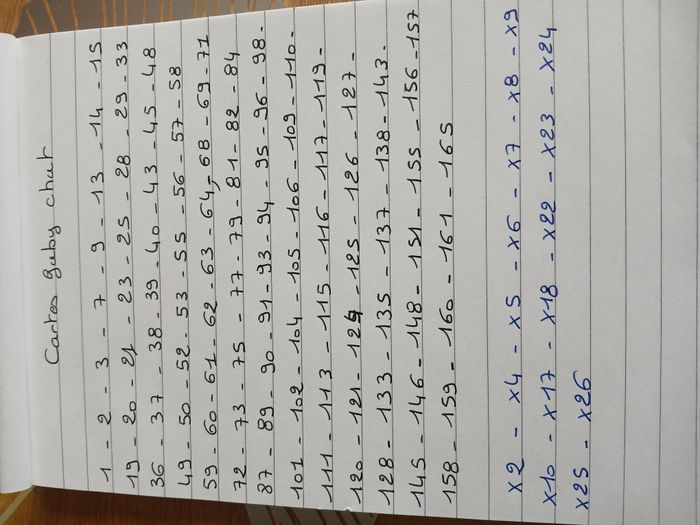 Cartes gaby chat
1 - 2 - 3 - 7 - 9 - 13 - 14 - 15
19 - 20 - 21 - 23 - 25 - 28 - 29 - 33
36 - 37 - 38 - 39 - 40 - 43 - 45 - 48
49 - 50 - 52 - 53 - 55 - 56 - 57 - 58
59 - 60 - 61 - 62 - 63 - 64 - 68 - 69 - 71
72 - 73 - 75 - 77 - 79 - 81 - 82 - 84
87 - 89 - 90 - 91 - 93 - 94 - 95 - 96 - 98 -
101 - 102 - 104 - 105 - 106 - 109 - 110 -
111 - 113 - 115 - 116 - 117 - 119 -
120 - 121 - 124 - 125 - 126 - 127 -
128 - 133 - 135 - 137 - 138 - 143 -
145 - 146 - 148 - 151 - 155 - 156 - 157
158 - 159 - 160 - 161 - 165
X2 - X4 - X5 - X6 - X7 - X8 - X9
X10 - X17 - X18 - X22 - X23 - X24
X25 - X26